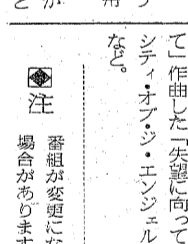 て」作曲した「失望に向って
シティ・オブ・ジ・エンジェル
など。
注
番組が変更にな
場合があります